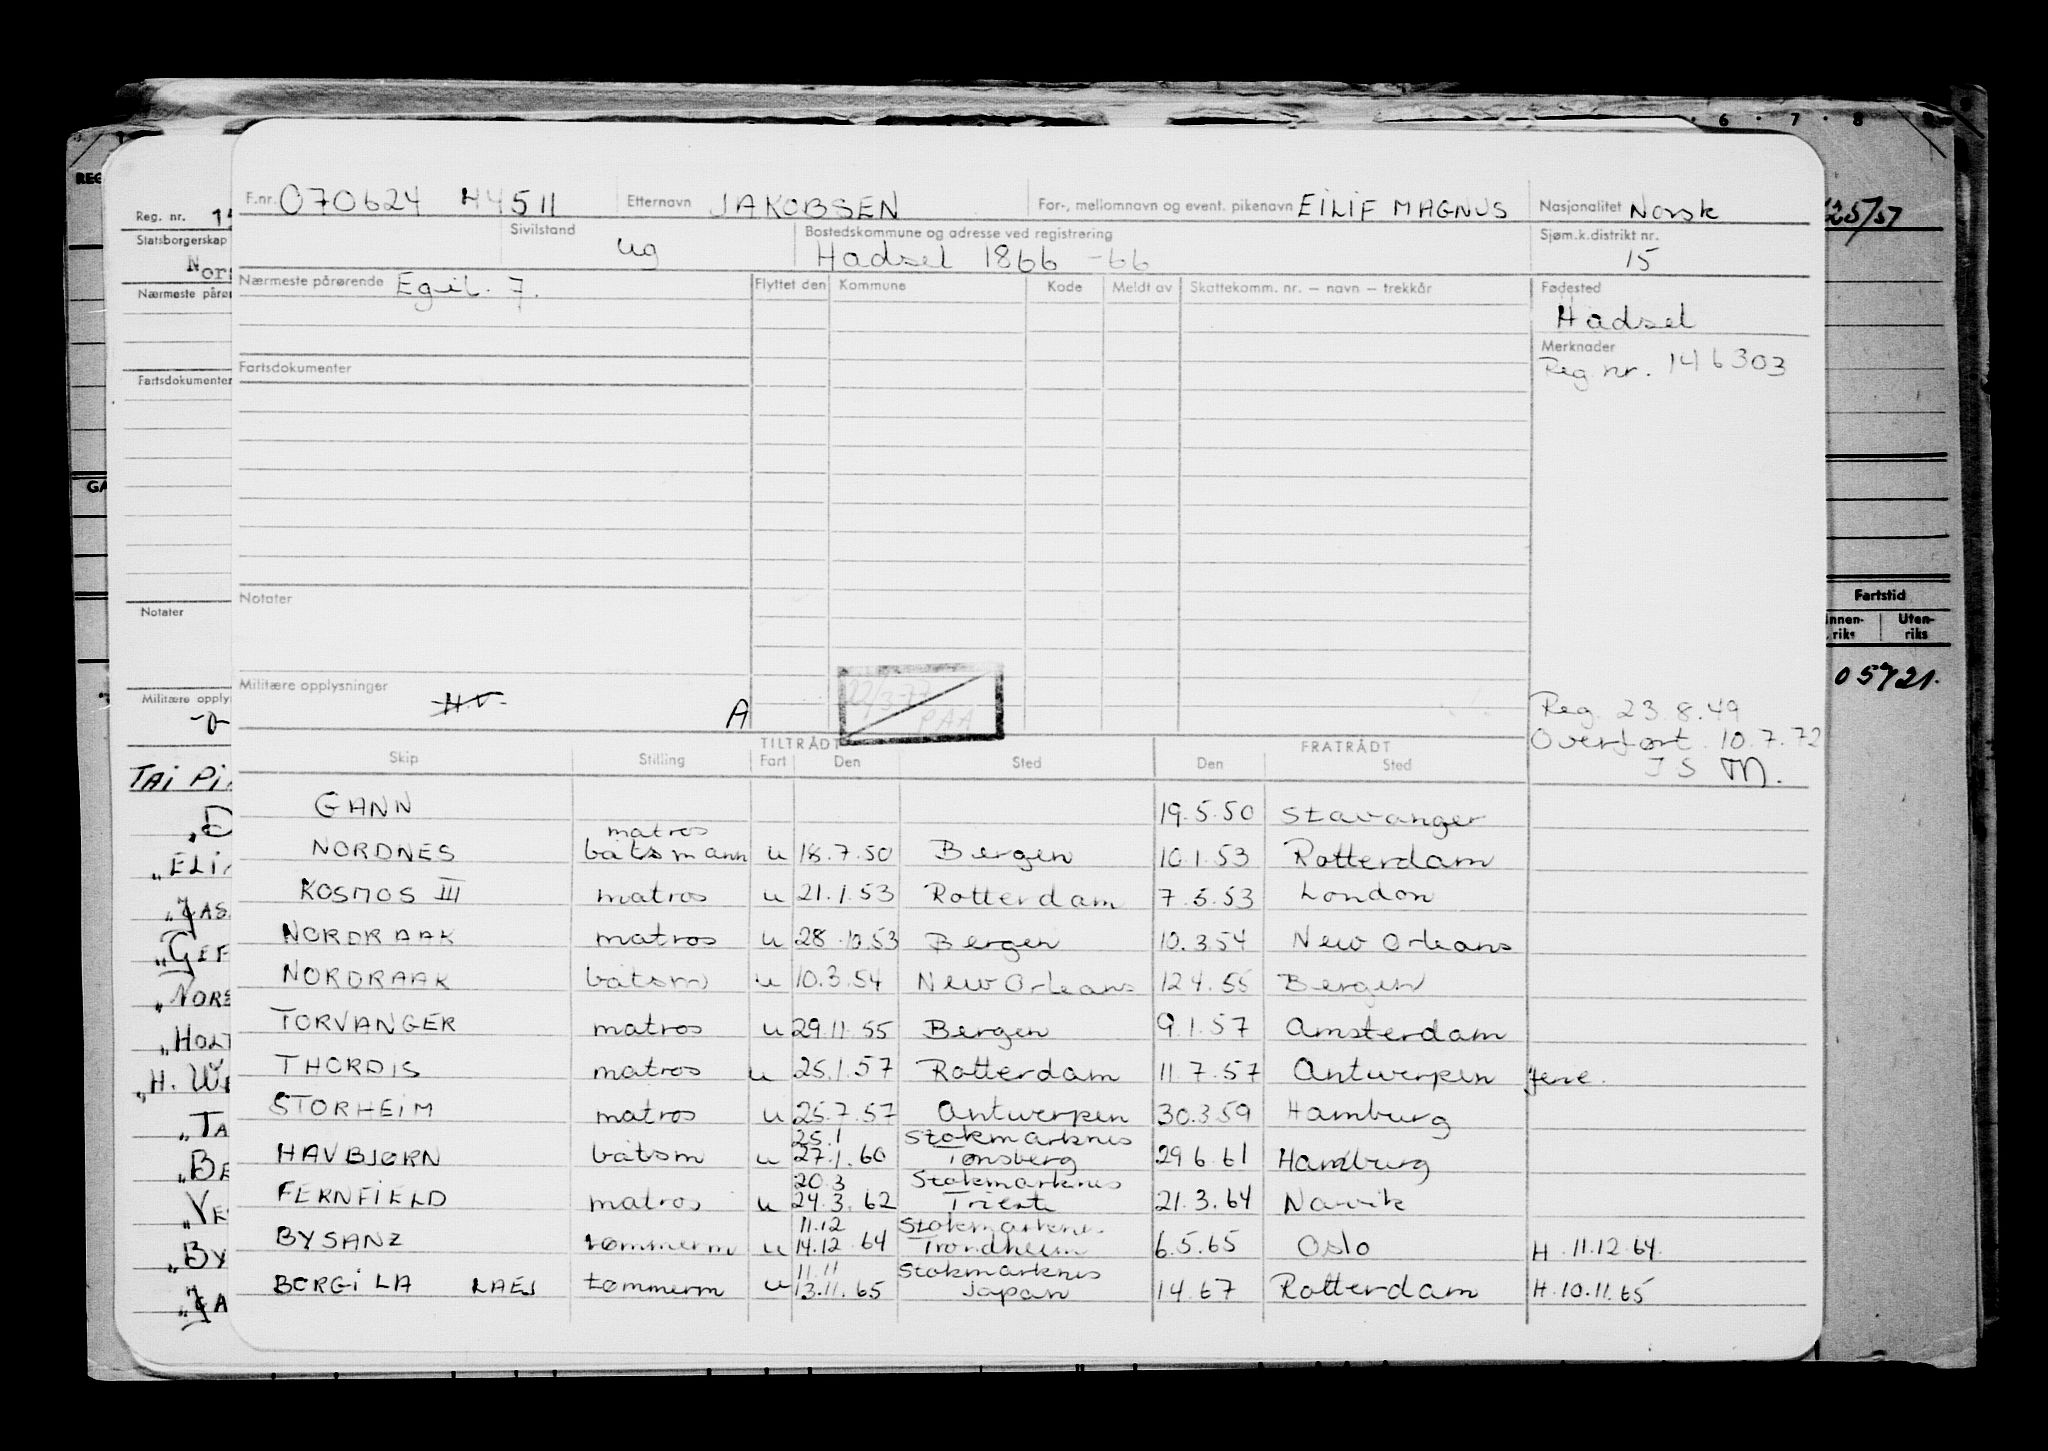 F.nr. 070624 44511 Etternavn JAKOBSEN For-, mellomnavn og event. pikenavn EILIF MAGNUS Nasjonalitet Norsk
Sivilstand ug Bostedskommune og adresse ved registrering Hadsel 1866 -66 Sjøm.k.distrikt nr. 15
Nærmeste pårørende Egil. F. Flyttet den Kommune Kode Meldt av Skattekomm. nr. – navn – trekkår Fødested
Hadsel
Merknader
Reg. nr. 146303
Fartsdokumenter
Notater
Militære opplysninger HV A
Reg. 23.8.49
Overført 10.7.72
TILTRÅDT FRATRÅDT
Skip Stilling Fart Den Sted Den Sted
GANN 19.5.50 Stavanger
matros
NORDNES båtsmann u 18.7.50 Bergen 10.1.53 Rotterdam
KOSMOS III matros u 21.1.53 Rotterdam 7.5.53 London
NORDRAAK matros u 28.10.53 Bergen 10.3.54 New Orleans
NORDRAAK båtsm u 10.3.54 New Orleans 12.4.55 Bergen
TORVANGER matros u 29.11.55 Bergen 9.1.57 Amsterdam
THORDIS matros u 25.1.57 Rotterdam 11.7.57 Antwerpen
STORHEIM matros u 25.7.57 Antwerpen 30.3.59 Hamburg
25.1 Stokmarknes
HAVBJØRN båtsm u 27.1.60 Tønsberg 29.6.61 Hamburg
20.3 Stokmarknes
FERNFIELD matros u 24.3.62 Trieste 21.3.64 Narvik
11.12 Stokmarkne.
BYSANZ tømmerm u 14.12.64 Trondheim 6.5.65 Oslo H. 11.12.64.
11.11 Stokmarknes
BERGE LA tømmerm u 13.11.65 Japan 1.4.67 Rotterdam H. 10.11.65
Reg. nr.
Statsborgerskap
Nærmeste pårør
Fartsdokumenter
Notater
Militære opply
TAI PI
„ELI
„JAS
„GEF
„NORS
„HOLT
„H. WE
„TA
„BE
„VE
„BY
„JA
REG
GA
6 7 8
25/57
Fartstid
Innenriks Utenriks